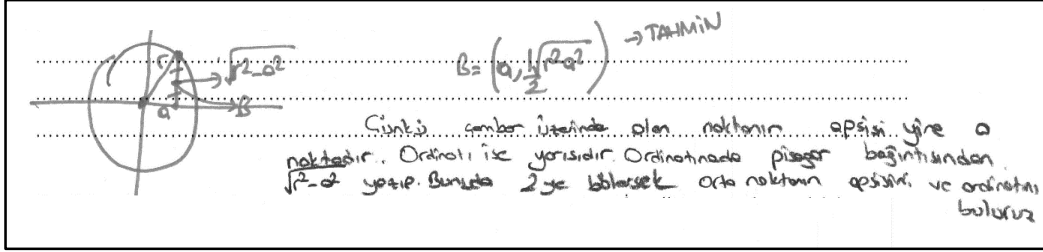 B = (a, 1/2 √r²-a²) → TAHMİN
r
√r²-a²
a
B
Çünkü çember üzerinde olan noktanın apsisi yine a
noktadır. Ordinatı ise yarısıdır. Ordinatınada pisagor bağıntısından
√r²-a² yazıp. Bunuda 2 ye bölersek orta noktanın apsisini ve ordinatını
buluruz